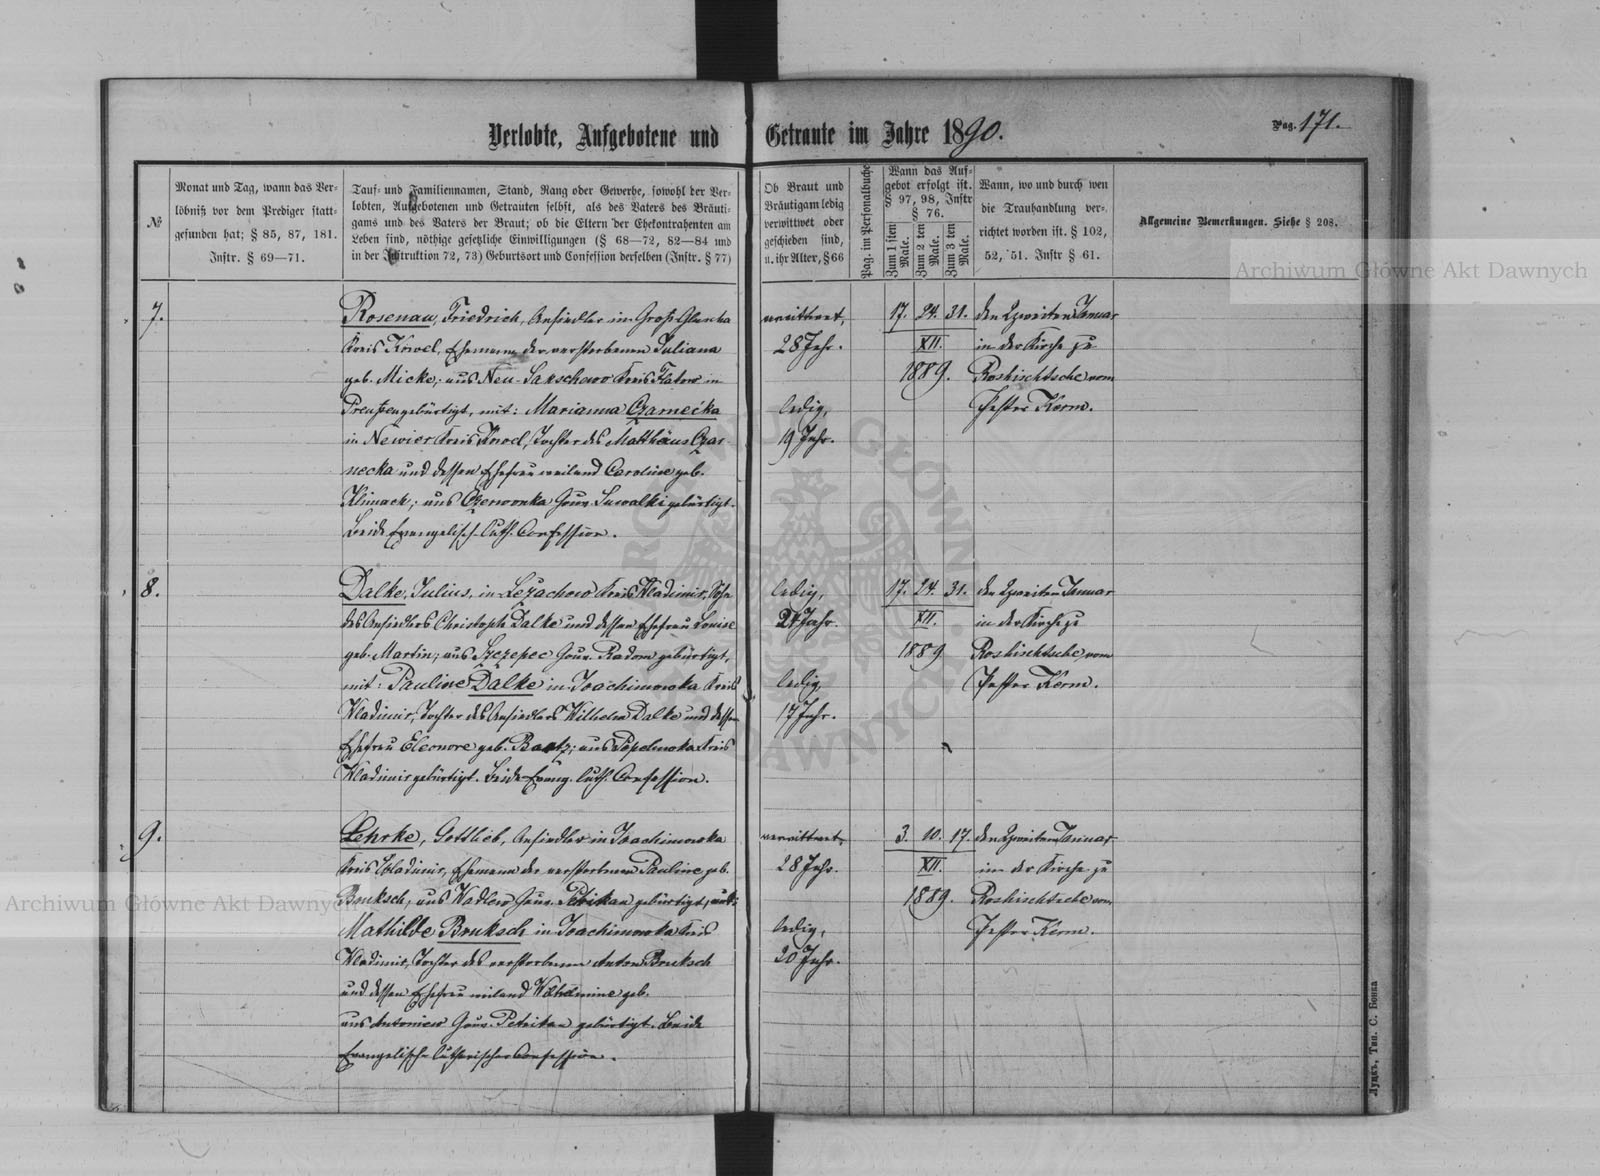 Verlobte, Aufgebotene und Getraute im Jahre 1890.
Pag. 171.
№
Monat und Tag, wann das Ver-
löbniß vor dem Prediger statt-
gefunden hat; § 85, 87, 181.
Instr. § 69—71.
Tauf- und Familiennamen, Stand, Rang oder Gewerbe, sowohl der Ver-
lobten, Aufgebotenen und Getrauten selbst, als des Vaters des Bräuti-
gams und des Vaters der Braut; ob die Eltern der Ehekontrahenten am
Leben sind, nöthige gesetzliche Einwilligungen (§ 68—72, 82—84 und
in der Instruktion 72, 73) Geburtsort und Confession derselben (Instr. § 77)
Ob Braut und
Bräutigam ledig
verwittwet oder
geschieden sind,
u. ihr Alter, § 66
Pag. im Personalbuche
Wann das Auf-
gebot erfolgt ist.
§ 97, 98, Instr
§ 76.
Zum 1 sten Male.
Zum 2 ten Male.
Zum 3 ten Male.
Wann, wo und durch wen
die Trauhandlung ver-
richtet worden ist. § 102,
52, 51. Instr § 61.
Allgemeine Bemerkungen. Siehe § 208.
7.
Rosenau, Friedrich, Ansiedler in Groß-Gluscha
Kreis Kowel, Ehemann der verstorbenen Juliana
geb. Micke; aus Neu-Sakschewo Kreis Flatow in
Preußen gebürtigt, mit: Marianna Czarnecka
in Newier Kreis Kowel, Tochter des Matthäus Czar-
necka und dessen Ehefrau weiland Caroline geb.
Klimack; aus Czerwonka Gouv. Suwalki gebürtigt.
Beide Evangelisch-luth. Confession.
verwittwet,
28 Jahr.
ledig,
19 Jahr.
17. 24. 31.
XII.
1889.
den zweiten Januar
in der Kirche zu
Roshischtsche vom
Pastor Kerm.
8.
Dalke, Julius, in Leżachow Kreis Wladimir, Sohn
des Ansiedlers Christoph Dalke und dessen Ehefrau Louise
geb. Martin; aus Szczepec Gouv. Radom gebürtigt,
mit: Pauline Dalke in Joachimowka Kreis
Wladimir, Tochter des Ansiedlers Wilhelm Dalke und dessen
Ehefrau Eleonore geb. Bartz; aus Popelowka Kreis
Wladimir gebürtigt. Beide Evang. luth. Confession.
ledig,
21 Jahr.
ledig,
17 Jahr.
17. 24. 31.
XII.
1889
den zweiten Januar
in der Kirche zu
Roshischtsche vom
Pastor Kerm.
9.
Lehrke, Gottlieb, Ansiedler in Joachimowka
Kreis Wladimir, Ehemann der verstorbenen Pauline geb.
Bruksch, aus Wadlew Gouv. Petrikau gebürtigt, mit:
Mathilde Bruksch in Joachimowka Kreis
Wladimir, Tochter des verstorbenen Anton Bruksch
und dessen Ehefrau weiland Wilhelmine geb.
aus Antoniew Gouv. Petrikau gebürtigt. Beide
Evangelisch-lutherischer Confession.
verwittwet,
28 Jahr.
ledig,
20 Jahr.
3. 10. 17.
XII.
1889.
den zweiten Januar
in der Kirche zu
Roshischtsche vom
Pastor Kerm.
Луцкъ, Тип. С. Бонка
Archiwum Główne Akt Dawnych
Archiwum Główne Akt Dawnych
ARCHIWUM GŁÓWNE AKT DAWNYCH